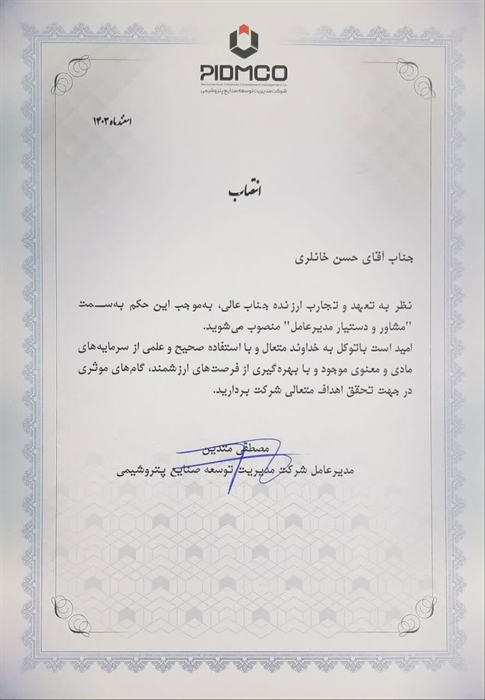 PIDMCO
شرکت مدیریت توسعه صنایع پتروشیمی
اسفند ماه ۱۴۰۳
انتصاب
جناب آقای حسن خانلری
نظر به تعهد و تجارب ارزنده جناب عالی، به‌موجب این حکم به‌سمت
"مشاور و دستیار مدیرعامل" منصوب می‌شوید.
امید است باتوکل به خداوند متعال و با استفاده صحیح و علمی از سرمایه‌های
مادی و معنوی موجود و با بهره‌گیری از فرصت‌های ارزشمند، گام‌های موثری
در جهت تحقق اهداف متعالی شرکت بردارید.
مصطفی متدین
مدیرعامل شرکت مدیریت توسعه صنایع پتروشیمی